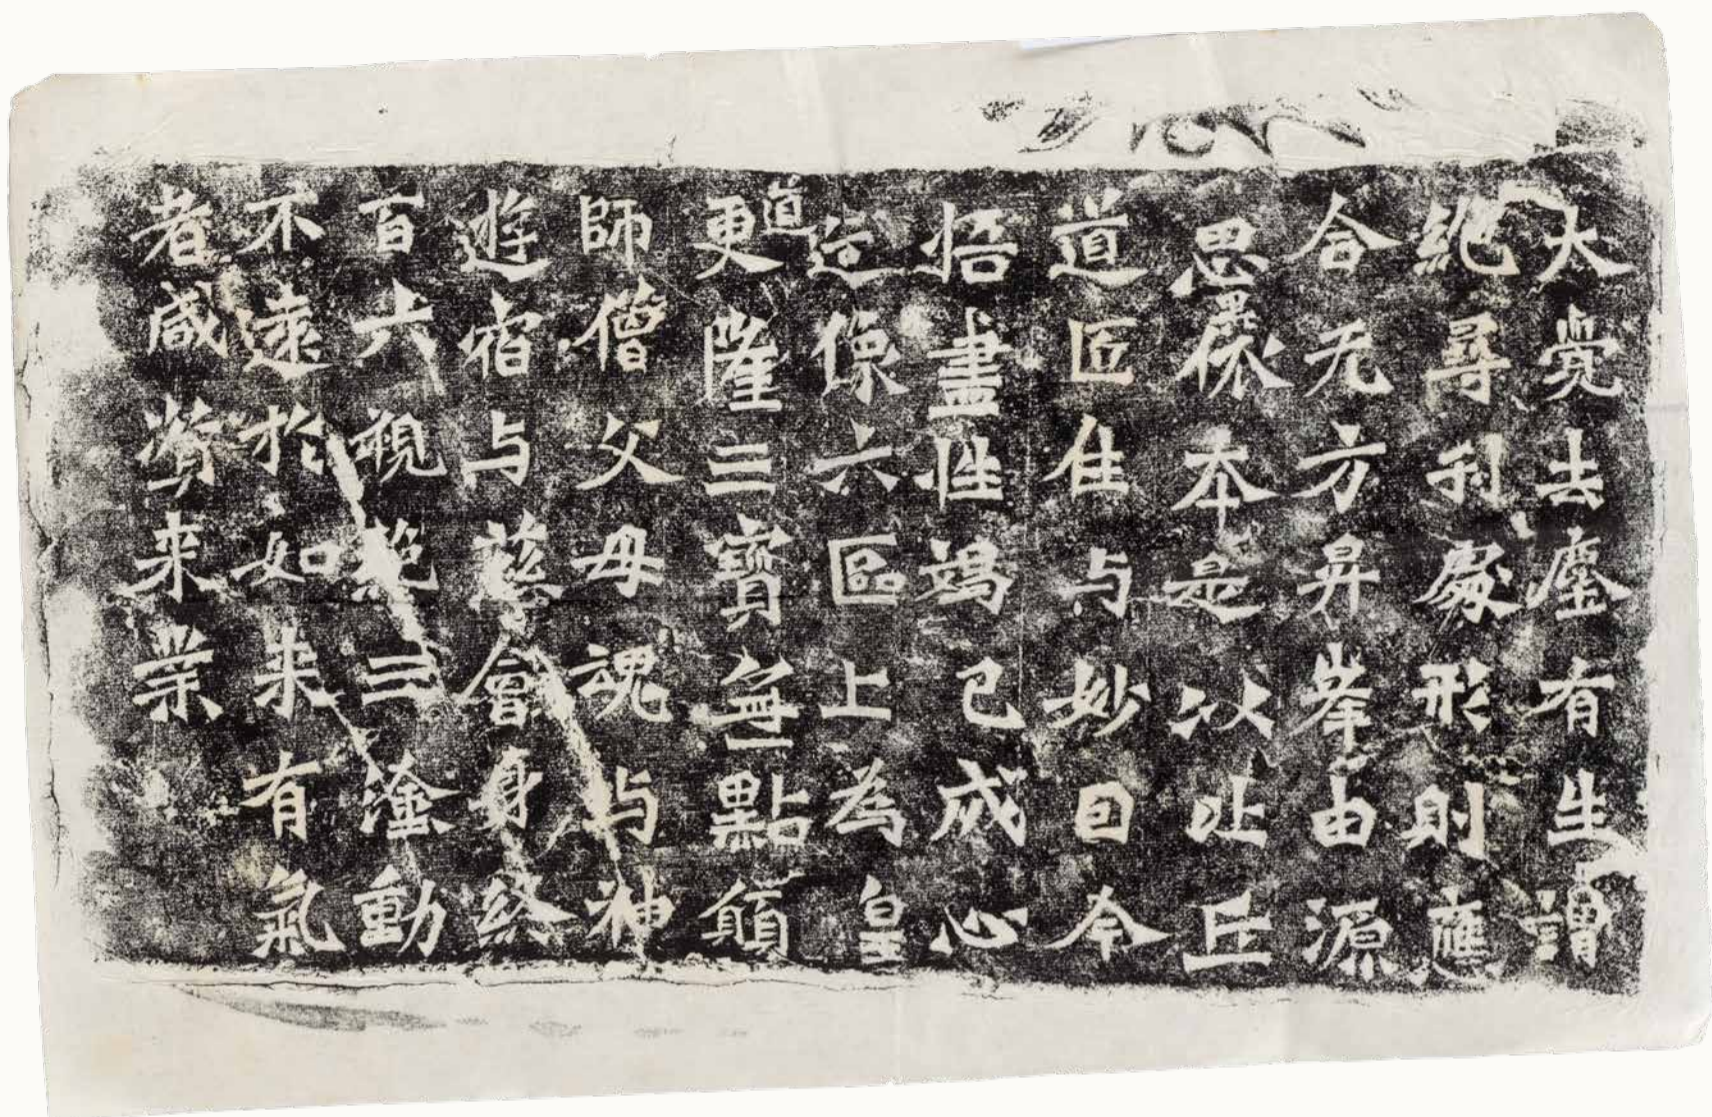 大覺去塵有生謂
絶尋利處形則應
合无方昇峯由源
思果依本是以比丘
道匠住与妙因今
悟盡性竭己成心
造像六區上為皇道
更隆三寶無點願
師僧父母魂与神
遊宿与慈會身終
百六視絶三塗動
不遠於如来有氣
者咸資来業